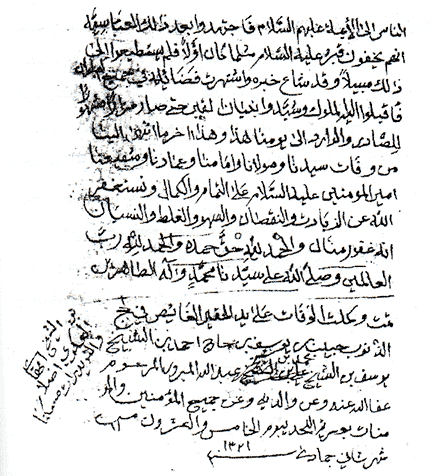 الناس الى الأئمة عليهم السلام فاجتهدوا بعد ذلك العباسية
انهم يخفون قبره عليه السلام مثلما كان اولا فلم يستطيعوا الى
ذلك سبيلا وقد شاع خبره واشتهرت فضائله في جميع
فاقبلوا اليه الملوك وشيدوا بنيان حتى صار
للصادر والوارد الى يومنا هذا وهذا اخر ما انتهى الينا
من وفات سيدنا ومولانا وامامنا وعمادنا وشفيعنا
امير المومنين عليه السلام على التمام والكمال ونستغفر
الله عن الزيادت والنقصان والسهو والغلط والنسيان
انه غفور منان والحمد لله حق حمده والحمد لله رب
العالمين وصلى الله على سيدنا محمد وآله الطاهرين
تمت وكملت الوفات على يد الحقير الغائص في لج
الذنوب حبيب بن يوسف بن حاج احمد ابن الشيخ
يوسف بن الشيخ محمد بن الشيخ علي بن عبدالله المبرور المرحوم
عفا الله عنه وعن والديه وعن جميع المؤمنين والمؤ
منات بيوم الخامس والعشرون من
شهر ثاني جمادى سنة ١٣٢١